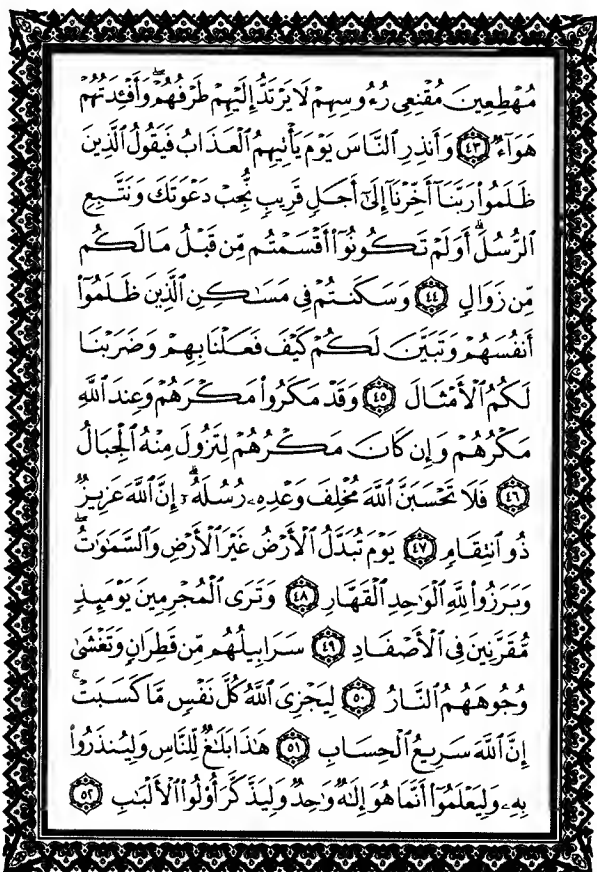 مُهْطِعِينَ مُقْنِعِى رُءُوسِهِمْ لَا يَرْتَدُّ إِلَيْهِمْ طَرْفُهُمْ ۖ وَأَفْـِٔدَتُهُمْ
هَوَآءٌ ﴿٤٣﴾ وَأَنذِرِ ٱلنَّاسَ يَوْمَ يَأْتِيهِمُ ٱلْعَذَابُ فَيَقُولُ ٱلَّذِينَ
ظَلَمُوا۟ رَبَّنَآ أَخِّرْنَآ إِلَىٰٓ أَجَلٍ قَرِيبٍ نُّجِبْ دَعْوَتَكَ وَنَتَّبِعِ
ٱلرُّسُلَ ۗ أَوَلَمْ تَكُونُوٓا۟ أَقْسَمْتُم مِّن قَبْلُ مَا لَكُم
مِّن زَوَالٍ ﴿٤٤﴾ وَسَكَنتُمْ فِى مَسَـٰكِنِ ٱلَّذِينَ ظَلَمُوٓا۟
أَنفُسَهُمْ وَتَبَيَّنَ لَكُمْ كَيْفَ فَعَلْنَا بِهِمْ وَضَرَبْنَا
لَكُمُ ٱلْأَمْثَالَ ﴿٤٥﴾ وَقَدْ مَكَرُوا۟ مَكْرَهُمْ وَعِندَ ٱللَّهِ
مَكْرُهُمْ وَإِن كَانَ مَكْرُهُمْ لِتَزُولَ مِنْهُ ٱلْجِبَالُ
﴿٤٦﴾ فَلَا تَحْسَبَنَّ ٱللَّهَ مُخْلِفَ وَعْدِهِۦ رُسُلَهُۥٓ ۗ إِنَّ ٱللَّهَ عَزِيزٌ
ذُو ٱنتِقَامٍ ﴿٤٧﴾ يَوْمَ تُبَدَّلُ ٱلْأَرْضُ غَيْرَ ٱلْأَرْضِ وَٱلسَّمَـٰوَٰتُ ۖ
وَبَرَزُوا۟ لِلَّهِ ٱلْوَٰحِدِ ٱلْقَهَّارِ ﴿٤٨﴾ وَتَرَى ٱلْمُجْرِمِينَ يَوْمَئِذٍ
مُّقَرَّنِينَ فِى ٱلْأَصْفَادِ ﴿٤٩﴾ سَرَابِيلُهُم مِّن قَطِرَانٍ وَتَغْشَىٰ
وُجُوهَهُمُ ٱلنَّارُ ﴿٥٠﴾ لِيَجْزِىَ ٱللَّهُ كُلَّ نَفْسٍ مَّا كَسَبَتْ ۚ
إِنَّ ٱللَّهَ سَرِيعُ ٱلْحِسَابِ ﴿٥١﴾ هَـٰذَا بَلَـٰغٌ لِّلنَّاسِ وَلِيُنذَرُوا۟
بِهِۦ وَلِيَعْلَمُوٓا۟ أَنَّمَا هُوَ إِلَـٰهٌ وَٰحِدٌ وَلِيَذَّكَّرَ أُو۟لُوا۟ ٱلْأَلْبَـٰبِ ﴿٥٢﴾